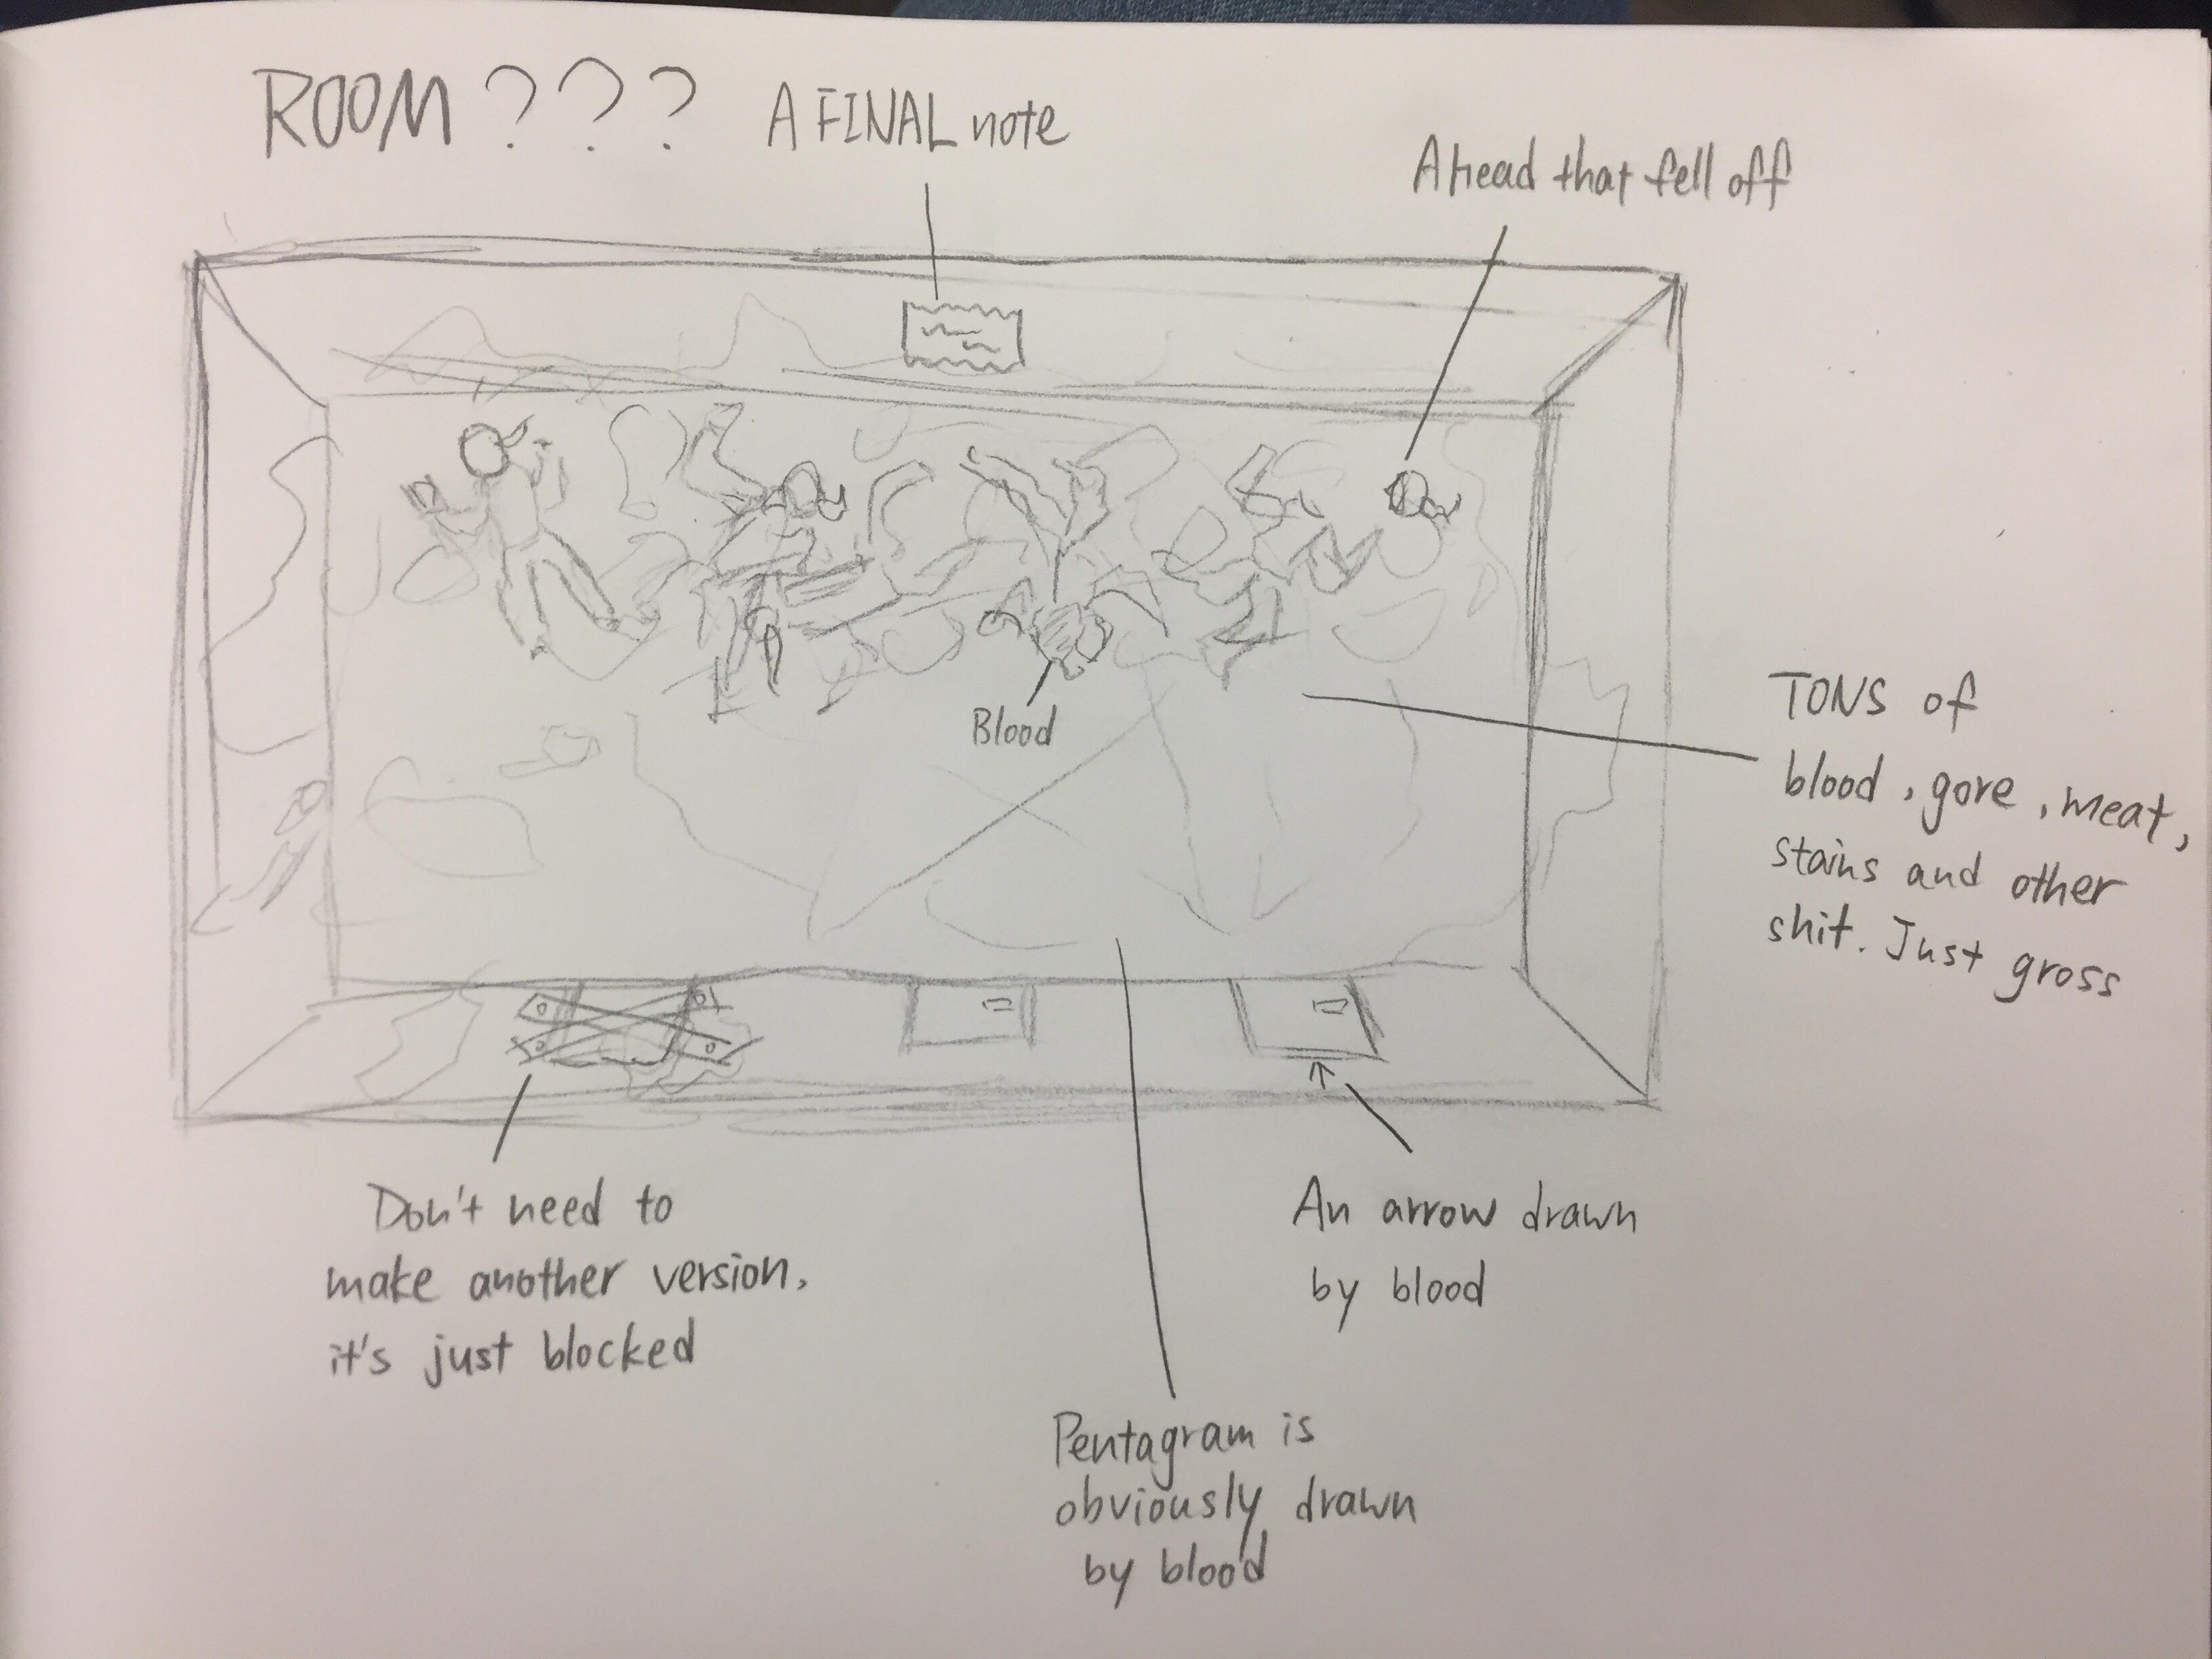 ROOM ???
A FINAL note
A head that fell off
Blood
TONS of
blood, gore, meat,
stains and other
shit. Just gross
Don't need to
make another version,
it's just blocked
An arrow drawn
by blood
Pentagram is
obviously drawn
by blood